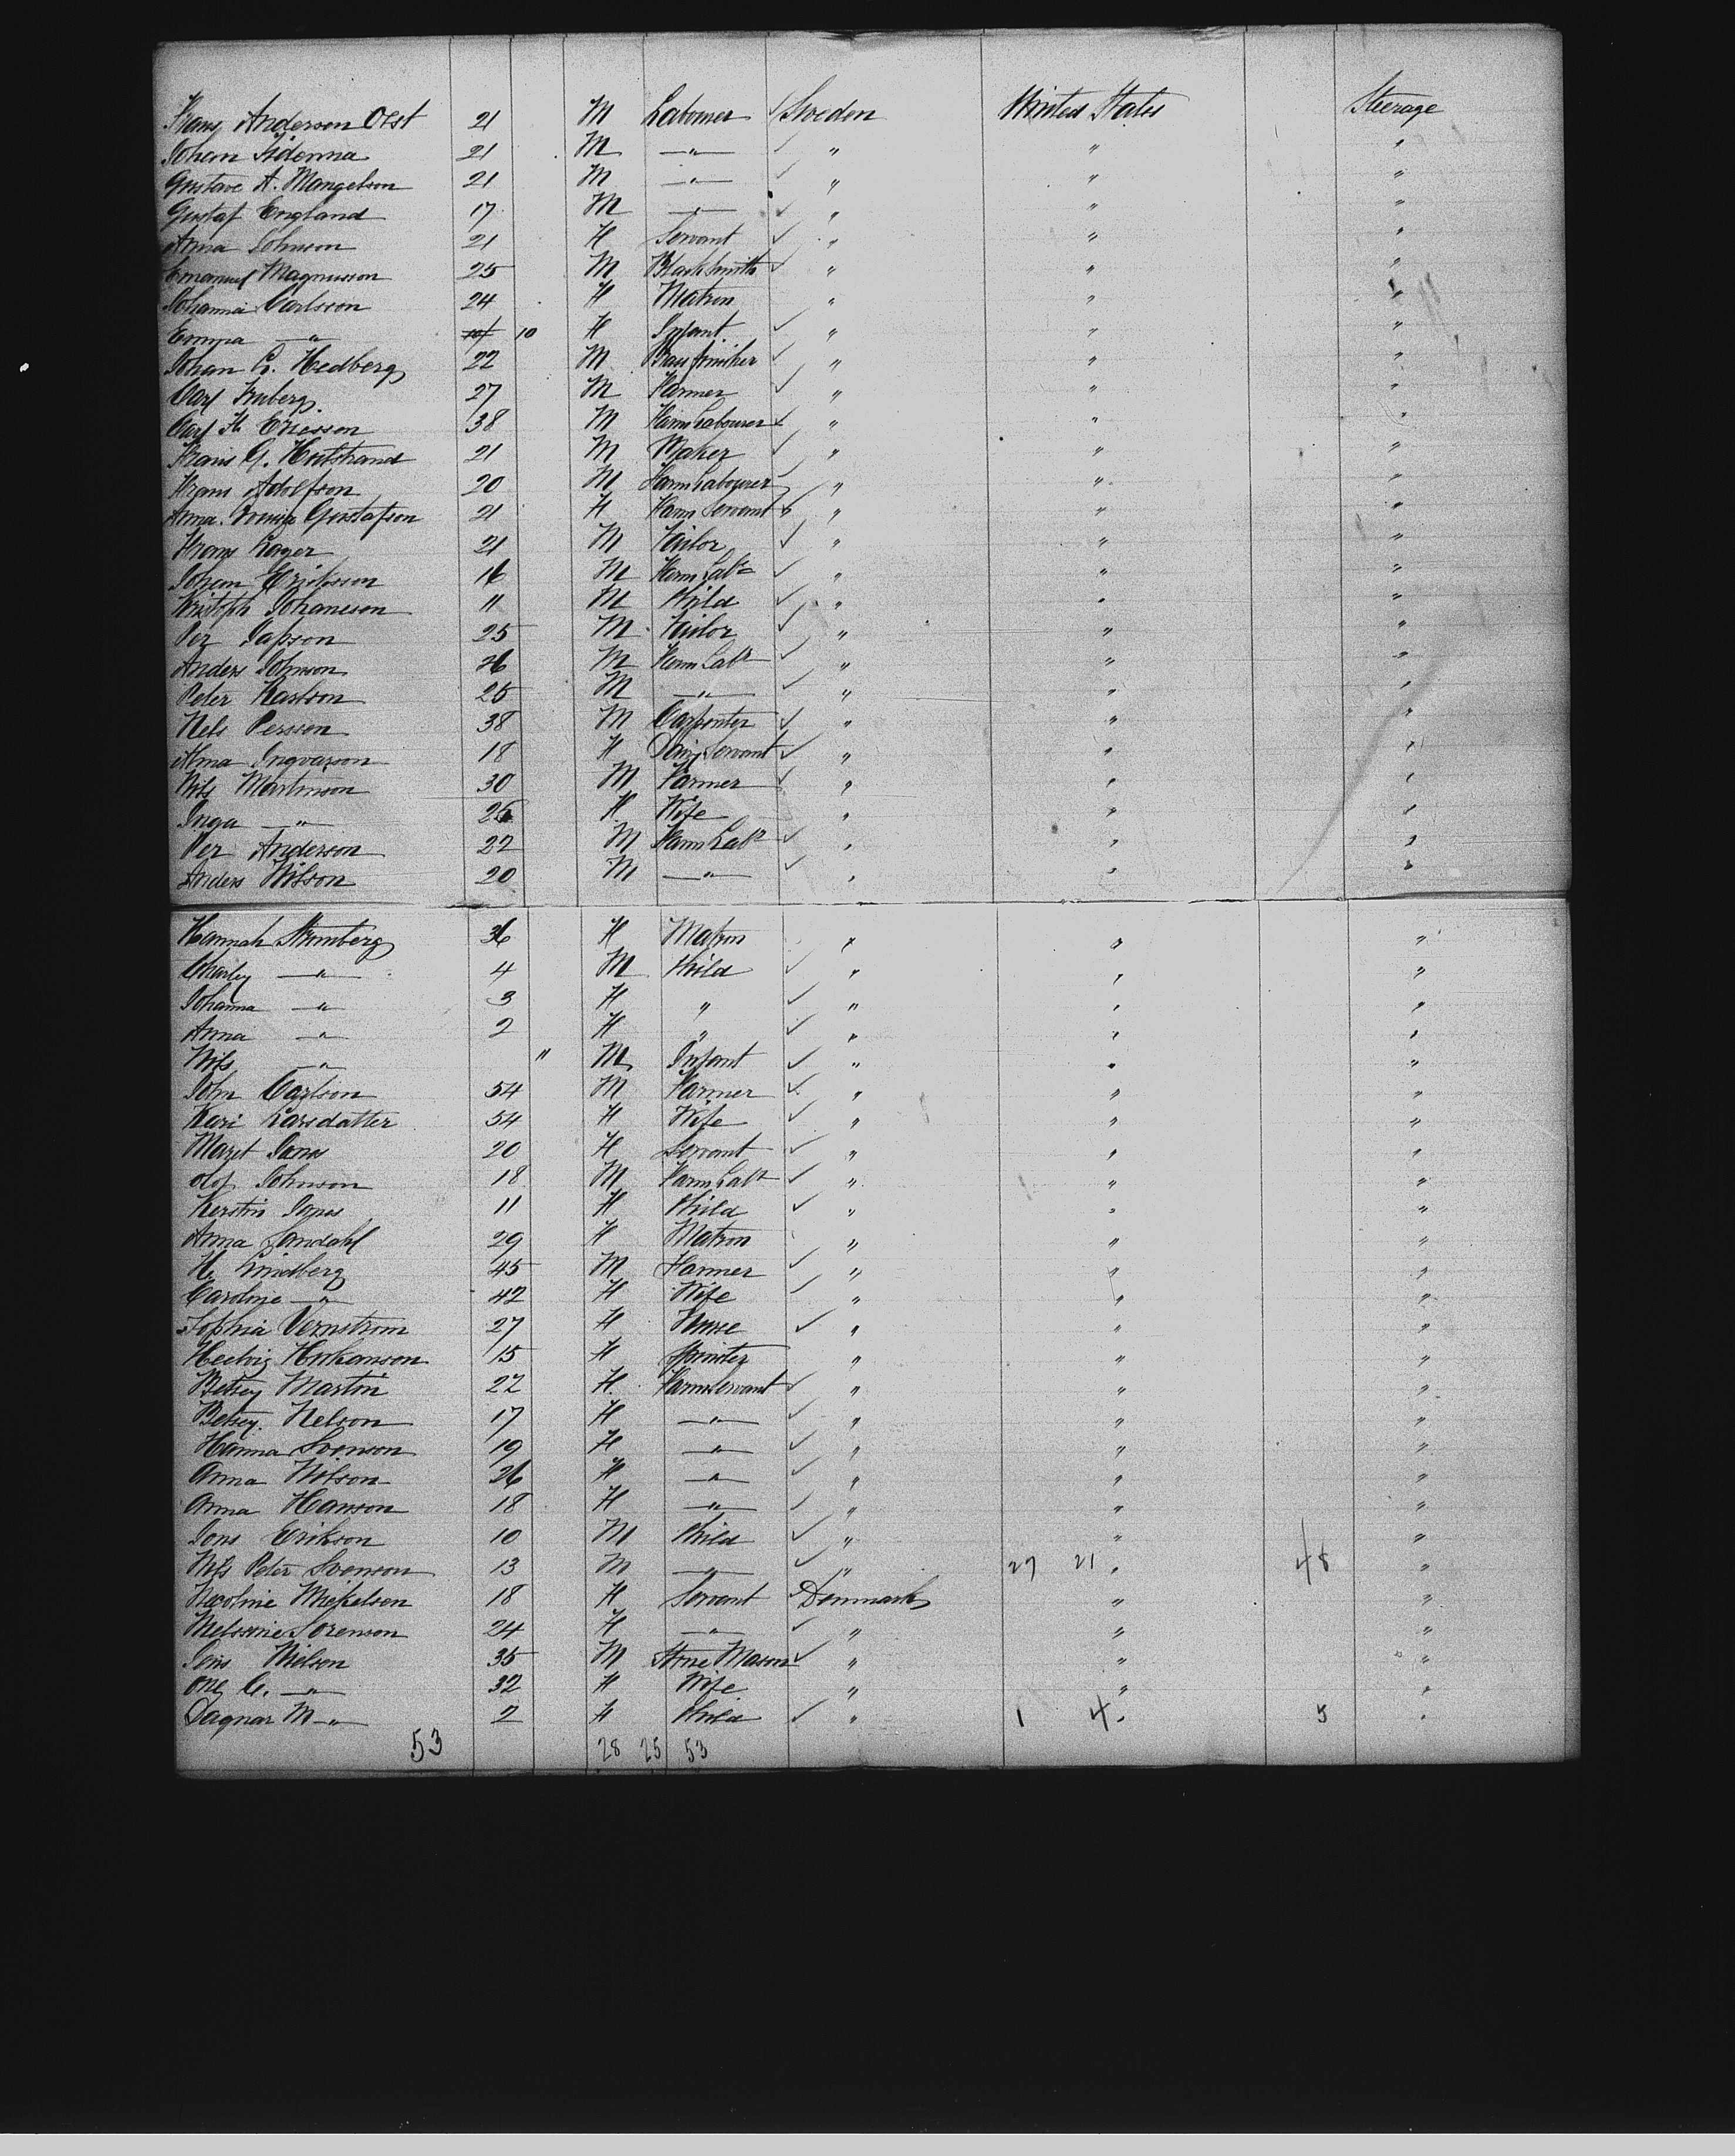 Frans Anderson Oest 21 M Labourer Sweden United States Steerage
Johan 21 M —"— " " "
Gustave A. Mangelson 21 M —"— " " "
Gustaf England 17 M —"— " " "
Anna Johnson 21 F Servant " " "
Emanuel Magnusson 25 M Blacksmith " " "
Johanna Carlsson 24 F Matron " " "
Emma —"— 10 F Infant " " "
Johan L. Hedberg 22 M " " "
Carl 27 M Farmer " " "
Carl F. Ericsson 38 M Farm Labourer " " "
Frans G. Hultstrand 21 M " " "
Frans Adolfson 20 M Farm Labourer " " "
Anna Lovisa Gustafson 21 F Farm Servant " " "
Frans Lager 21 M Tailor " " "
Johan Eriksson 16 M Farm Labr " " "
Kristoph Johanesson 11 M Child " " "
Per 25 M Tailor " " "
Anders Johnson 26 M Farm Labr " " "
Peter Karlson 25 M —"— " " "
Nels Persson 38 M Carpenter " " "
Alma Ingvarson 18 F Servant " " "
Nils Martinson 30 M Farmer " " "
Inga —"— 26 F Wife " " "
Per Anderson 22 M Farm Labr " " "
Anders Nilson 20 M —"— " " "
Hannah Stromberg 36 F Matron " " "
Charley —"— 4 M Child " " "
Johanna —"— 3 F " " " "
Anna —"— 2 F " " " "
Nils —"— " M Infant " " "
John Carlson 54 M Farmer " " "
Kari Larsdatter 54 F Wife " " "
Marit Jons 20 F Servant " " "
Olof Johnson 18 M Farm Labr " " "
Kerstin Jons 11 F Child " " "
Anna Sandahl 29 F Matron " " "
H. Lindberg 45 M Farmer " " "
Caroline —"— 42 F Wife " " "
Sophia Vernstrom 27 F Nurse " " "
Hedvig Hokanson 15 F Spinster " " "
Betsey Martin 22 F Farm Servant " " "
Betsey Nelson 17 F —"— " " "
Hanna Svenson 19 F —"— " " "
Anna Nilson 26 F —"— " " "
Anna Hanson 18 F —"— " " "
Jons Erikson 10 M Child " " "
Nils Peter Svenson 13 M —"— " 27 21 " 48 "
Nicoline Mickelson 18 F Servant Denmark " "
Nelssine Sorenson 24 F —"— " " "
Jens Nielsen 35 M Stone Mason " " "
C. —"— 32 F Wife " " "
Dagmar M —"— 2 F Child " 1 4 " 5 "
53 28 25 53